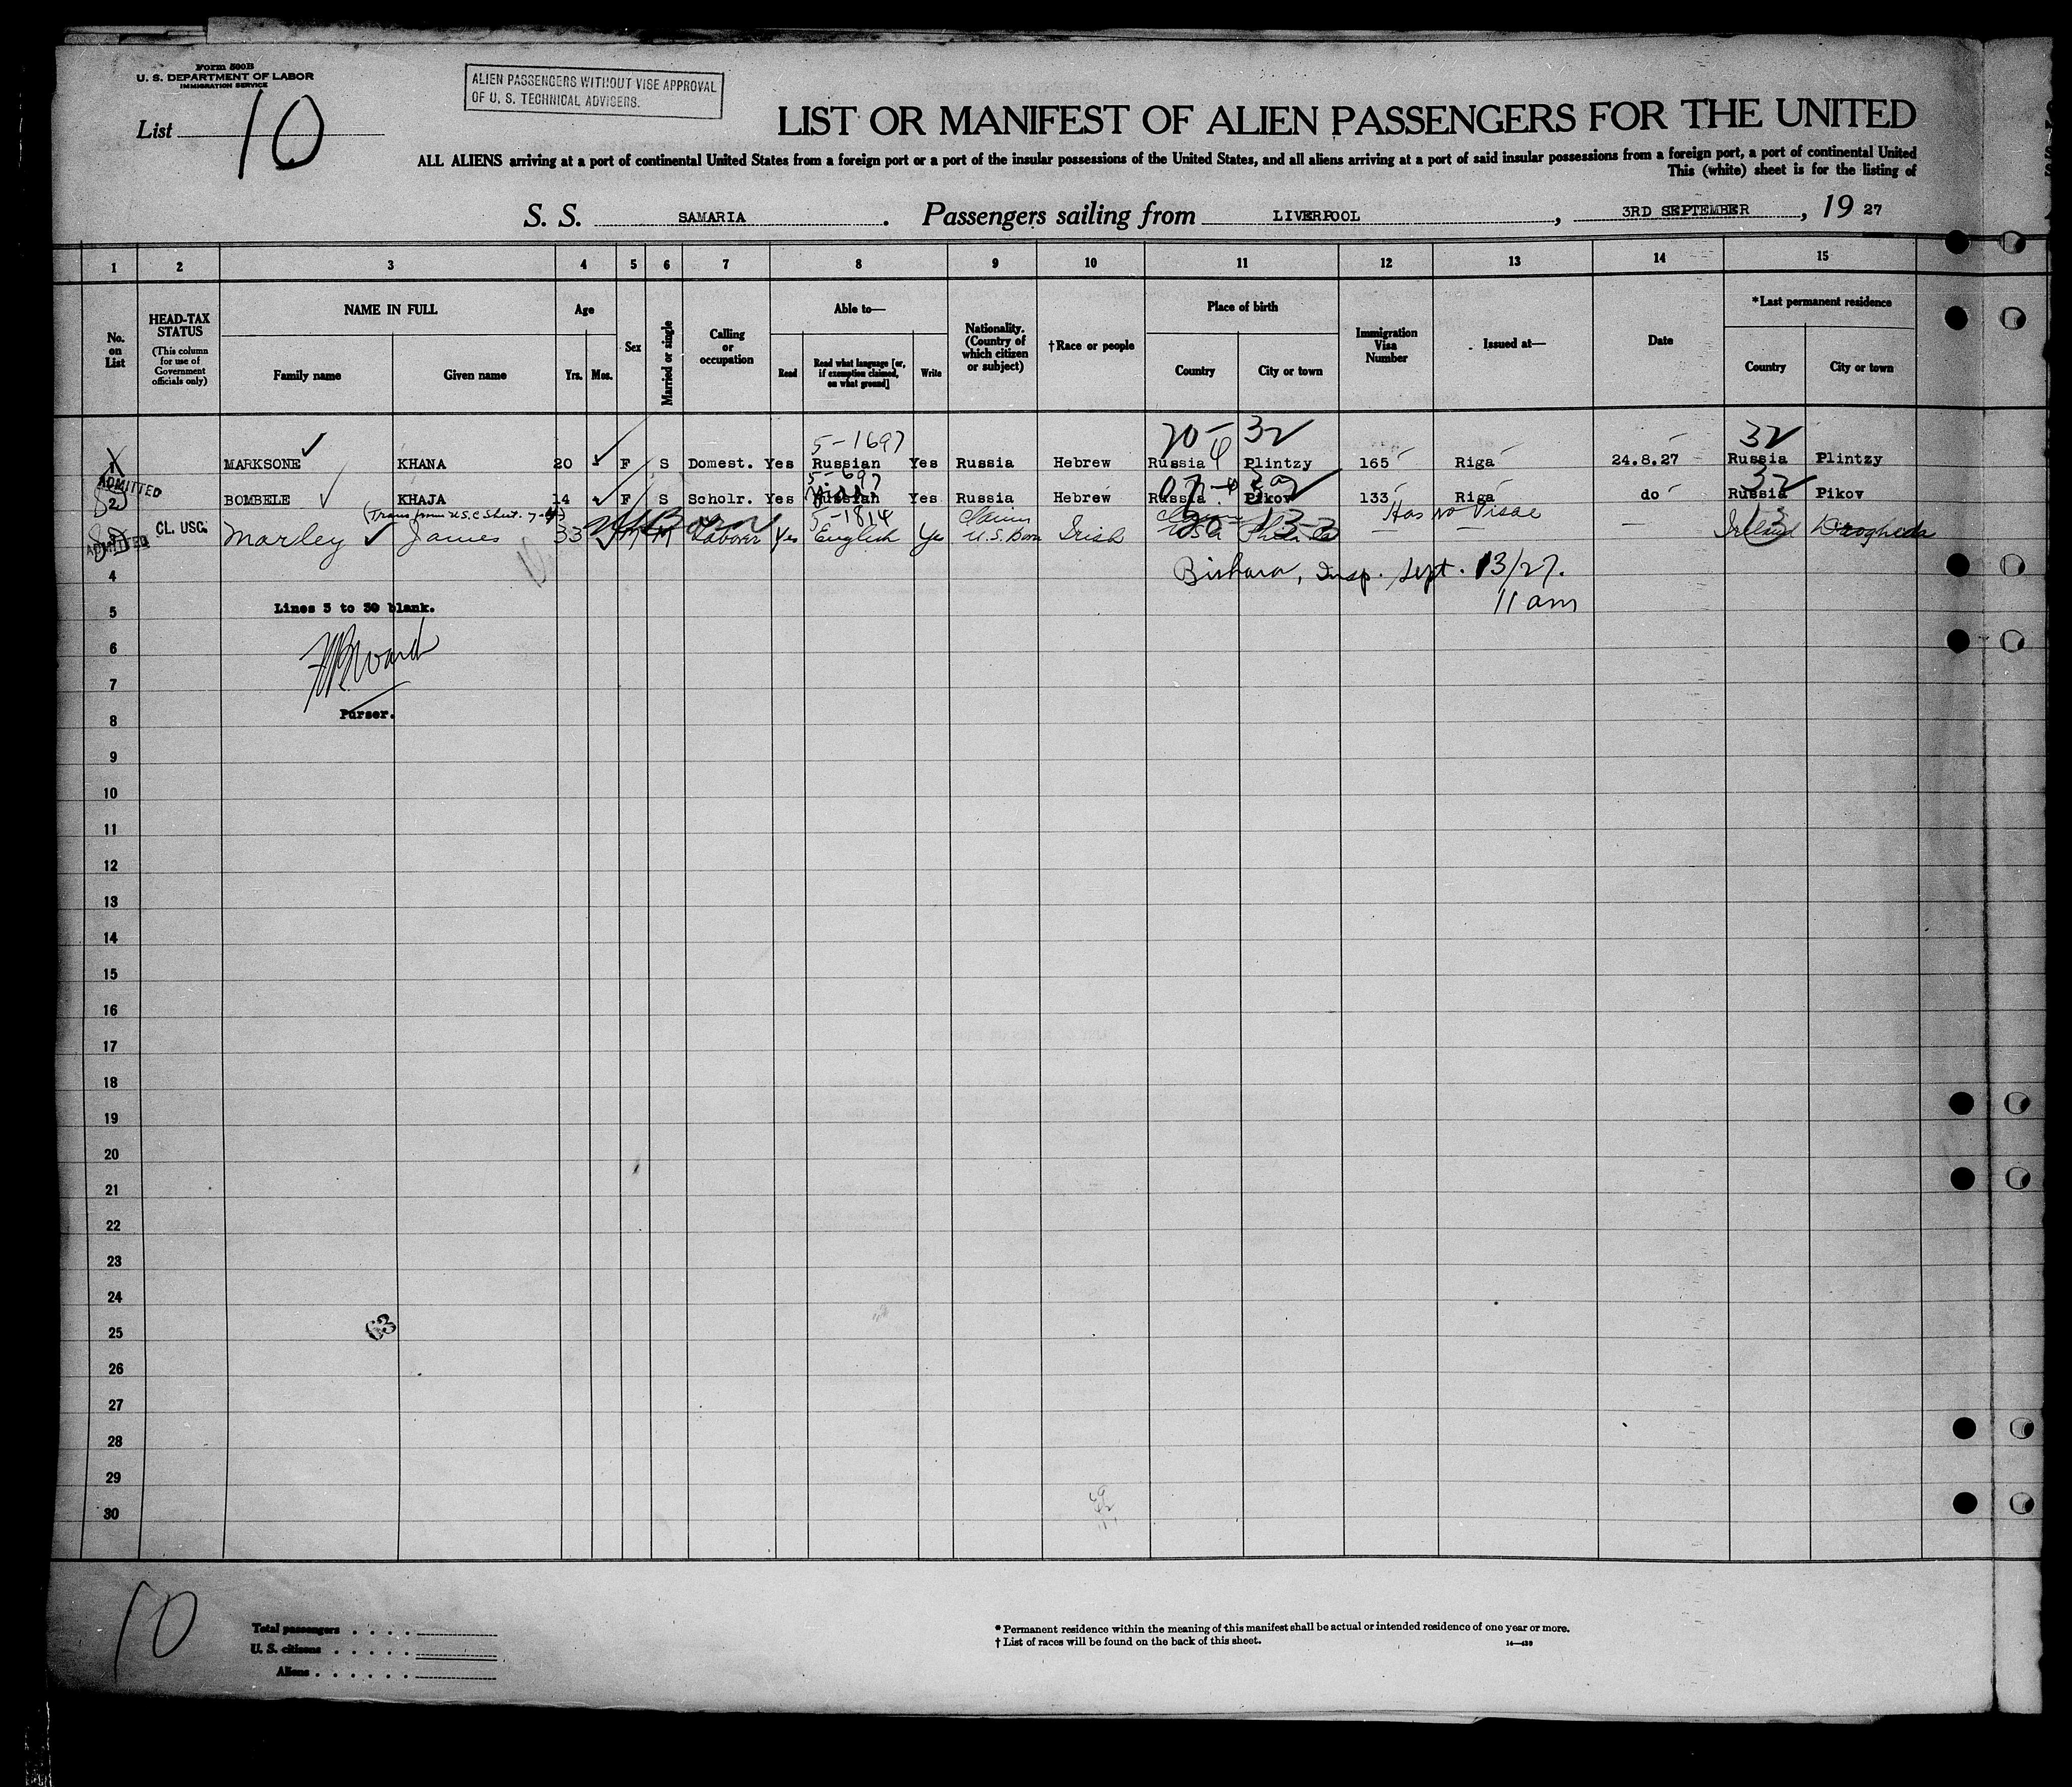 Form 500B
U. S. DEPARTMENT OF LABOR
IMMIGRATION SERVICE
List 10
ALIEN PASSENGERS WITHOUT VISE APPROVAL
OF U. S. TECHNICAL ADVISERS.
LIST OR MANIFEST OF ALIEN PASSENGERS FOR THE UNITED
ALL ALIENS arriving at a port of continental United States from a foreign port or a port of the insular possessions of the United States, and all aliens arriving at a port of said insular possessions from a foreign port, a port of continental United
This (white) sheet is for the listing of
S. S. SAMARIA . Passengers sailing from LIVERPOOL , 3RD SEPTEMBER , 19 27
1 2 3 4 5 6 7 8 9 10 11 12 13 14 15
No. on List
HEAD-TAX STATUS
(This column for use of Government officials only)
NAME IN FULL
Family name Given name
Age
Yrs. Mos.
Sex
Married or single
Calling or occupation
Able to—
Read
Read what language [or, if exemption claimed, on what ground]
Write
Nationality. (Country of which citizen or subject)
†Race or people
Place of birth
Country City or town
Immigration Visa Number
Issued at—
Date
*Last permanent residence
Country City or town
5-1697 70- 4 32 32
1 MARKSONE KHANA 20 F S Domest. Yes Russian Yes Russia Hebrew Russia Plintzy 165 Riga 24.8.27 Russia Plintzy
ADMITTED
5-697 32
2 BOMBELE KHAJA 14 F S Scholr. Yes Yes Russia Hebrew Russia Pikov 133 Riga do Russia Pikov
(Trans from U.S.C Sheet 7-4) 5-1814 Claim Has no Visae
ADMITTED CL. USC. Marley James 33 M M Labour Yes English Yes U.S. Born Irish USA Phila Ireland Drogheda
4 Insp. Sept. 13/27.
11 am
5 Lines 3 to 30 blank.
6
7
Purser.
8
9
10
11
12
13
14
15
16
17
18
19
20
21
22
23
24
25
63
26
27
28
29
30
10
Total passengers
U. S. citizens
Aliens
* Permanent residence within the meaning of this manifest shall be actual or intended residence of one year or more.
† List of races will be found on the back of this sheet. 14—439